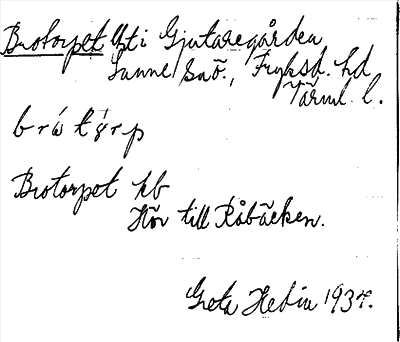 Brotorpet lht i Gjutaregården
Sunne sn ö., Fryksd. hd
Värml. l.
bro torp
Brotorpet kb
Hör till Råbäcken.
Greta Hedin 1934.